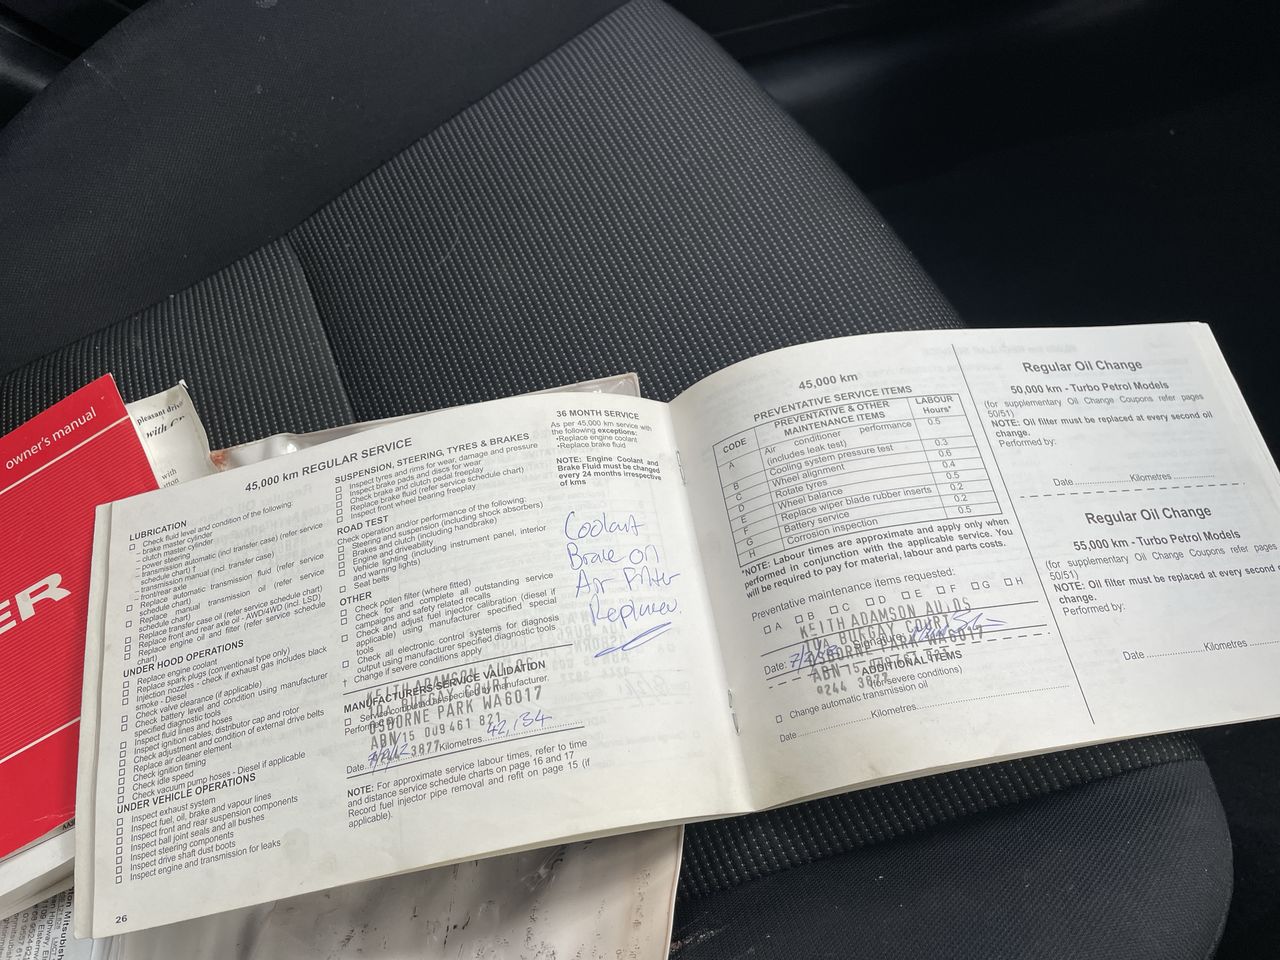 owner's manual
ER
pleasant drive
with
45,000 km REGULAR SERVICE
LUBRICATION
Check fluid level and condition of the following:
– brake master cylinder
– clutch master cylinder
– power steering
– transmission automatic (incl transfer case) (refer service
schedule chart) †
– transmission manual (incl. transfer case)
– front/rear axle
Replace automatic transmission fluid (refer service
schedule chart)
Replace manual transmission oil (refer service
schedule chart)
Replace transfer case oil (refer service schedule chart)
Replace front and rear axle oil - AWD/4WD (incl. LSD)
Replace engine oil and filter (refer service schedule
chart)
UNDER HOOD OPERATIONS
Replace engine coolant
Replace spark plugs (conventional type only)
Injection nozzles - check if exhaust gas includes black
smoke - Diesel
Check valve clearance (if applicable)
Check battery level and condition using manufacturer
specified diagnostic tools
Inspect fluid lines and hoses
Inspect ignition cables, distributor cap and rotor
Check adjustment and condition of external drive belts
Replace air cleaner element
Check ignition timing
Check idle speed
Check vacuum pump hoses - Diesel if applicable
UNDER VEHICLE OPERATIONS
Inspect exhaust system
Inspect fuel, oil, brake and vapour lines
Inspect front and rear suspension components
Inspect ball joint seals and all bushes
Inspect steering components
Inspect drive shaft dust boots
Inspect engine and transmission for leaks
26
SUSPENSION, STEERING, TYRES & BRAKES
Inspect tyres and rims for wear, damage and pressure
Inspect brake pads and discs for wear
Check brake and clutch pedal freeplay
Replace brake fluid (refer service schedule chart)
Inspect front wheel bearing freeplay
ROAD TEST
Check operation and/or performance of the following:
Steering and suspension (including shock absorbers)
Brakes and clutch (including handbrake)
Engine and driveability
Vehicle lighting (including instrument panel, interior
and warning lights)
Seat belts
OTHER
Check pollen filter (where fitted)
Check for and complete all outstanding service
campaigns and safety related recalls
Check and adjust fuel injector calibration (diesel if
applicable) using manufacturer specified special
tools
Check all electronic control systems for diagnosis
output using manufacturer specified diagnostic tools
† Change if severe conditions apply
MANUFACTURERS SERVICE VALIDATION
Service completed as specified by manufacturer.
KEITH ADAMSON AUTOS
10A BUCKBAY COURT
OSBORNE PARK WA6017
ABN 15 009 461 821
3877
Date Kilometres 42,184
NOTE: For approximate service labour times, refer to time
and distance service schedule charts on page 16 and 17
Record fuel injector pipe removal and refit on page 15 (if
applicable).
36 MONTH SERVICE
As per 45,000 km service with
the following exceptions:
•Replace engine coolant
•Replace brake fluid
NOTE: Engine Coolant and
Brake Fluid must be changed
every 24 months irrespective
of kms
Coolant
Brake oil
Air Filter
Replaced.
45,000 km
PREVENTATIVE SERVICE ITEMS
CODE PREVENTATIVE & OTHER MAINTENANCE ITEMS LABOUR Hours*
A Air conditioner performance (includes leak test) 0.5
B Cooling system pressure test 0.3
C Wheel alignment 0.6
D Rotate tyres 0.4
E Wheel balance 0.5
F Replace wiper blade rubber inserts 0.2
G Battery service 0.2
H Corrosion inspection 0.5
*NOTE: Labour times are approximate and apply only when
performed in conjunction with the applicable service. You
will be required to pay for material, labour and parts costs.
Preventative maintenance items requested:
A B C D E F G H
KEITH ADAMSON AUTOS
OSBORNE PARK WA6017
Date:
ABN 15
9244 3877
ADDITIONAL ITEMS
(for severe conditions)
Change automatic transmission oil
Date Kilometres
Regular Oil Change
50,000 km - Turbo Petrol Models
(for supplementary Oil Change Coupons refer pages
50/51)
NOTE: Oil filter must be replaced at every second oil
change.
Performed by:
Date Kilometres
Regular Oil Change
55,000 km - Turbo Petrol Models
(for supplementary Oil Change Coupons refer pages
50/51)
NOTE: Oil filter must be replaced at every second
change.
Performed by:
Date Kilometres